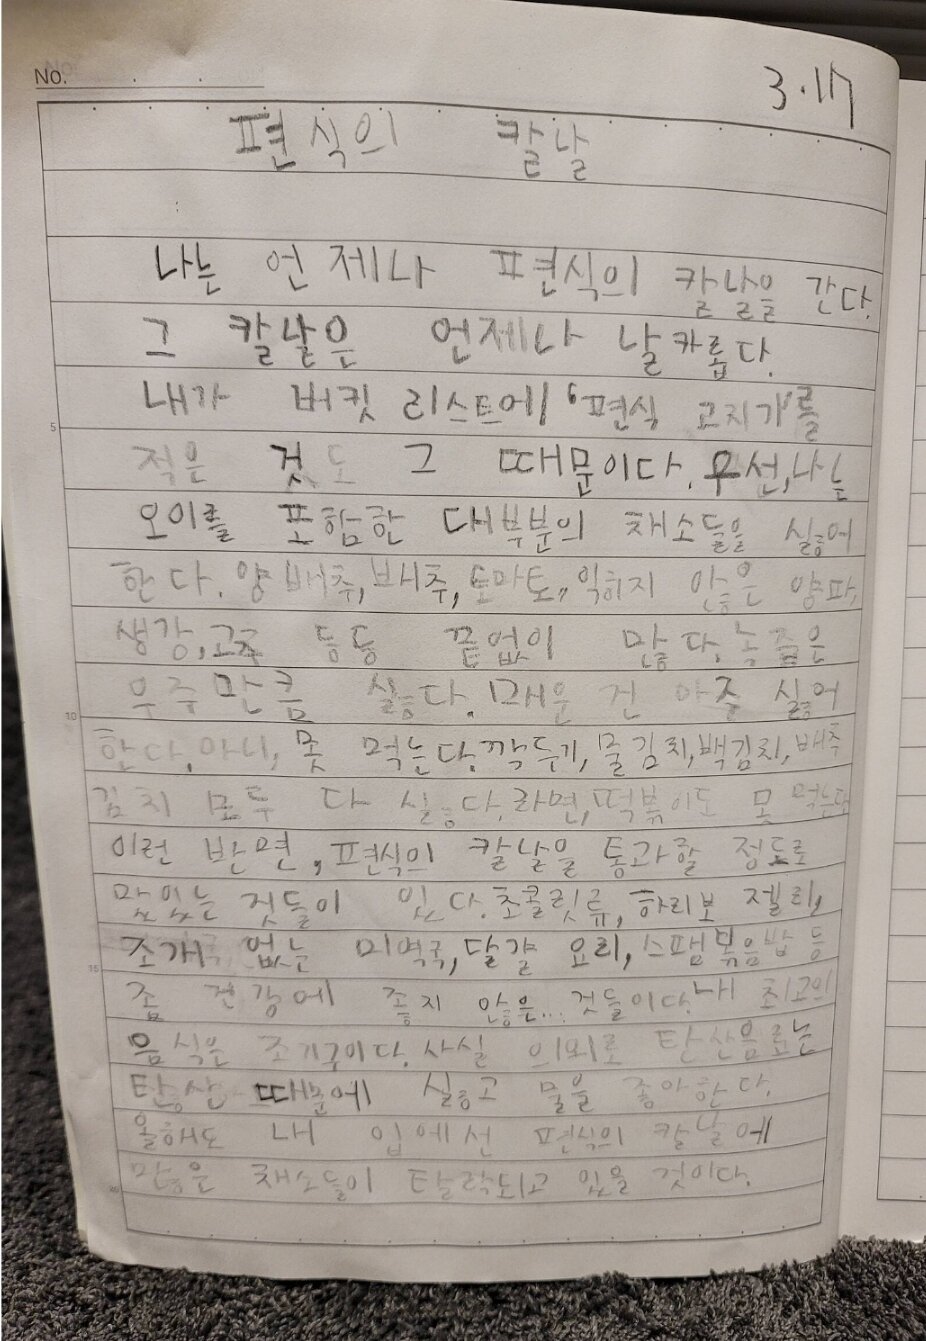 No.
3.17
편식의 칼날
나는 언제나 편식의 칼날을 간다.
그 칼날은 언제나 날카롭다.
내가 버킷 리스트에 '편식 고치기'를
적은 것도 그 때문이다. 우선, 나는
오이를 포함한 대부분의 채소들을 싫어
한다. 양배추, 배추, 토마토, 익히지 않은 양파,
생강, 고추 등등 끝없이 많다. 녹즙은
우주만큼 싫다. 매운 건 아주 싫어
한다. 아니, 못 먹는다. 깍두기, 물김치, 백김치, 배추
김치 모두 다 싫다. 라면, 떡볶이도 못 먹는다
이런 반면, 편식의 칼날을 통과할 정도로
맛있는 것들이 있다. 초콜릿류, 하리보 젤리,
조개 없는 미역국, 달걀 요리, 스팸볶음밥 등
좀 건강에 좋지 않은... 것들이다. 내 최고의
음식은 조기구이다. 사실 의외로 탄산음료는
탄산 때문에 싫고 물을 좋아한다.
올해도 내 입에선 편식의 칼날에
많은 채소들이 탈락되고 있을 것이다.